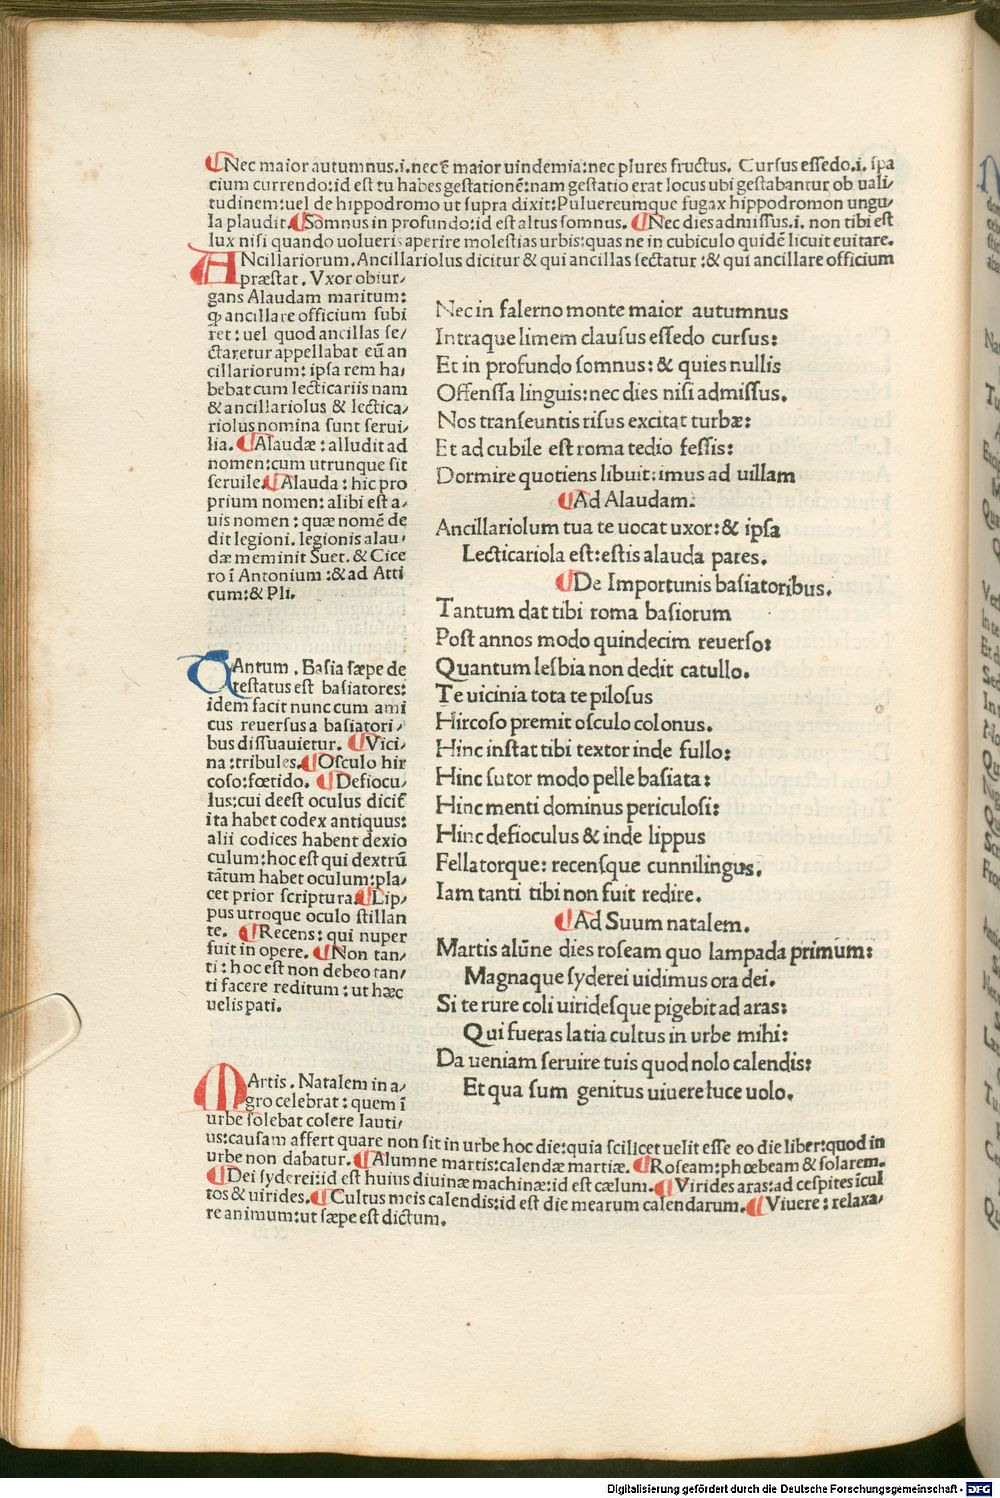 ¶Nec maior autumnus.i.nec ē maior uindemia:nec plures fructus. Cursus essedo.i. spa
cium currendo:id est tu habes gestationē:nam gestatio erat locus ubi gestabantur ob uali/
tudinem:uel de hippodromo ut supra dixit:Puluereumque fugax hippodromon ungu/
la plaudit.¶Somnus in profundo:id est altus somnus. ¶Nec dies admissus.i. non tibi est
lux nisi quando uolueris aperire molestias urbis:quas ne in cubiculo quidē licuit euitare.
ANcillariorum. Ancillariolus dicitur & qui ancillas sectatur :& qui ancillare officium
præstat. Vxor obiur/
gans Alaudam maritum:
ꝙ ancillare officium subi
ret: uel quod ancillas se/
ctaretur appellabat eū an
cillariorum: ipsa rem ha/
bebat cum lecticariis nam
& ancillariolus & lectica/
riolus nomina sunt serui/
lia. ¶Alaudæ : alludit ad
nomen:cum utrunque sit
seruile.¶Alauda : hic pro
prium nomen: alibi est a/
uis nomen : quæ nomē de
dit legioni. legionis alau/
dæ meminit Suet. & Cice
ro ī Antonium :& ad Atti
cum:& Pli.
Nec in falerno monte maior autumnus
Intraque limem clausus essedo cursus:
Et in profundo somnus: & quies nullis
Offenssa linguis:nec dies nisi admissus.
Nos transeuntis risus excitat turbæ:
Et ad cubile est roma tedio fessis:
Dormire quotiens libuit: imus ad uillam
¶Ad Alaudam.
Ancillariolum tua te uocat uxor:& ipsa
Lecticariola est:estis alauda pares.
¶De Importunis basiatoribus.
Tantum dat tibi roma basiorum
Post annos modo quindecim reuerso:
Quantum lesbia non dedit catullo.
Te uicinia tota te pilosus
Hircoso premit osculo colonus.
Hinc instat tibi textor inde fullo:
Hinc sutor modo pelle basiata:
Hinc menti dominus periculosi:
Hinc defioculus & inde lippus
Fellatorque: recensque cunnilingus.
Iam tanti tibi non fuit redire.
¶Ad Suum natalem.
Martis alūne dies roseam quo lampada primum:
Magnaque syderei uidimus ora dei.
Si te rure coli uiridesque pigebit ad aras:
Qui fueras latia cultus in urbe mihi:
Da ueniam seruire tuis quod nolo calendis:
Et qua sum genitus uiuere luce uolo.
TAntum. Basia sæpe de
testatus est basiatores:
idem facit nunc cum ami
cus reuersus a basiatori/
bus dissuauietur. ¶Vici/
na:tribules.¶Osculo hir
coso:fœtido. ¶Defiocu/
lus:cui deest oculus dicit̄
ita habet codex antiquus:
alii codices habent dexio
culum:hoc est qui dextrū
tātum habet oculum:pla/
cet prior scriptura.¶Lip/
pus utroque oculo stillan
te. ¶Recens: qui nuper
fuit in opere. ¶Non tan/
ti: hoc est non debeo tan/
ti facere reditum: ut hæc
uelis pati.
MArtis. Natalem in a/
gro celebrat : quem ī
urbe solebat colere lauti/
us:causam affert quare non sit in urbe hoc die:quia scilicet uelit esse eo die liber:quod in
urbe non dabatur. ¶Alumne martis:calendæ martiæ. ¶Roseam:phœbeam & solarem.
¶Dei syderei:id est huius diuinæ machinæ:id est cælum. ¶Virides aras:ad cespites īcul
tos & uirides. ¶Cultus meis calendis:id est die mearum calendarum.¶Viuere: relaxa/
re animum:ut sæpe est dictum.
Digitalisierung gefördert durch die Deutsche Forschungsgemeinschaft - DFG